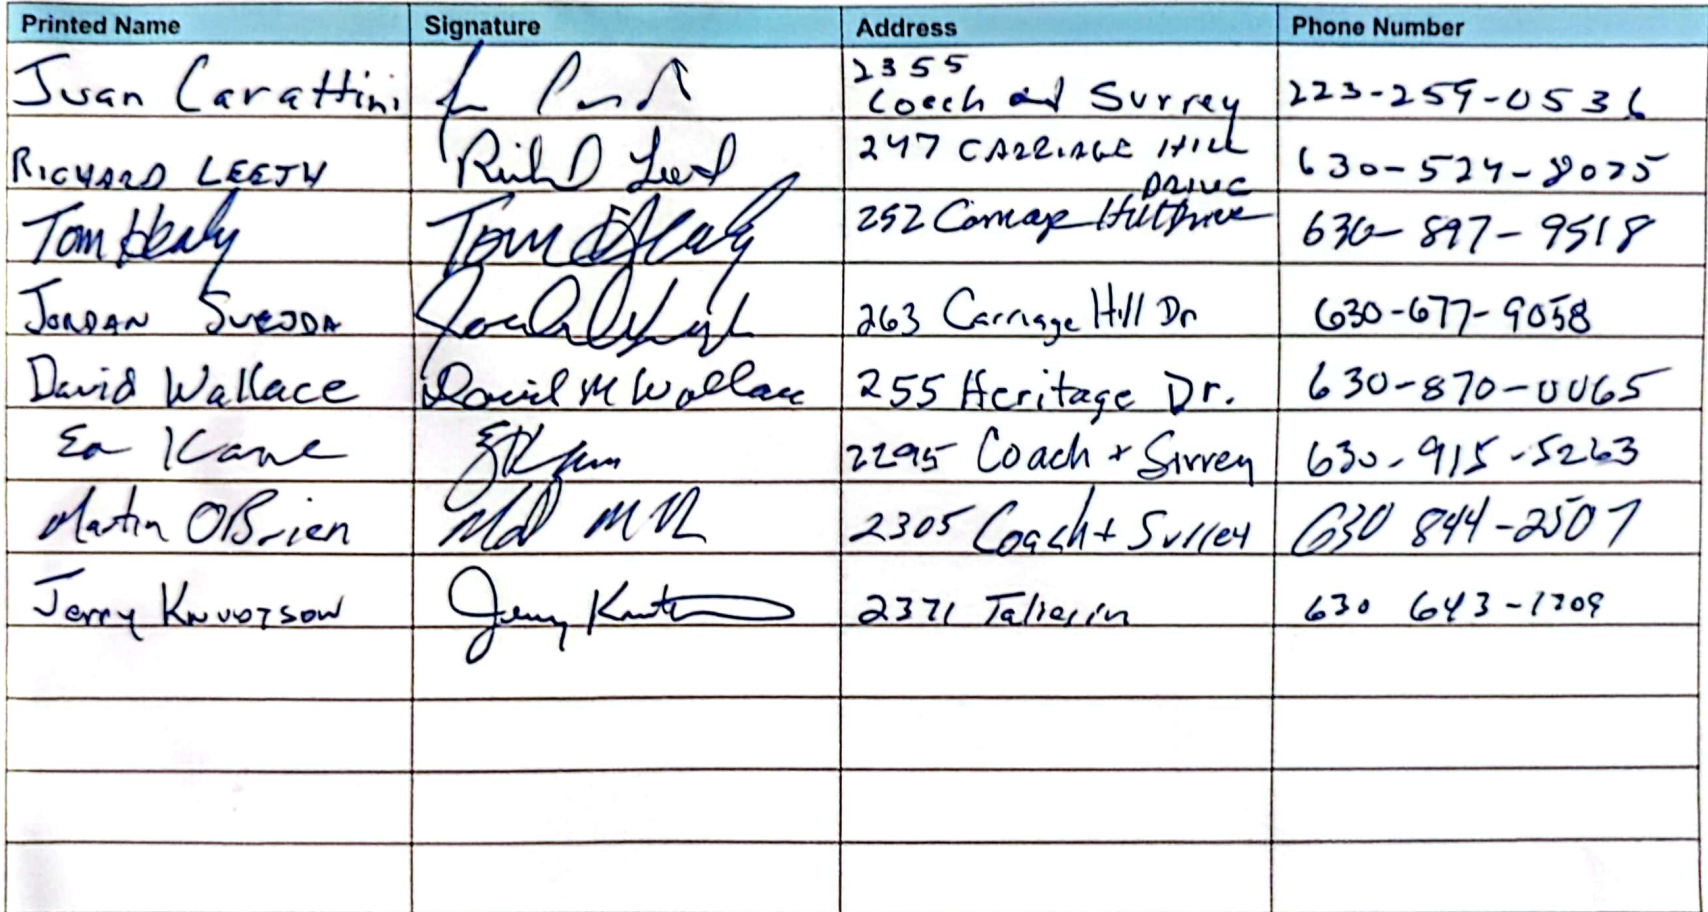 Printed Name Signature Address Phone Number
Juan Carattini 2355 Coech and Surrey 223-259-0536
RICHARD LEETH 247 CARRIAGE HILL DRIVE 630-524-8075
Tom Healy Tom Healy 252 Carriage Hill Drive 630-897-9518
JORDAN SVEJDA 263 Carriage Hill Dr 630-677-9058
David Wallace David M Wallace 255 Heritage Dr. 630-870-0065
Ed Kane 2295 Coach + Surrey 630-915-5263
Martin OBrien 2305 Coach + Surrey 630 844-2507
Jerry KNUDTSON Jerry 2371 Taliesin 630 643-1209